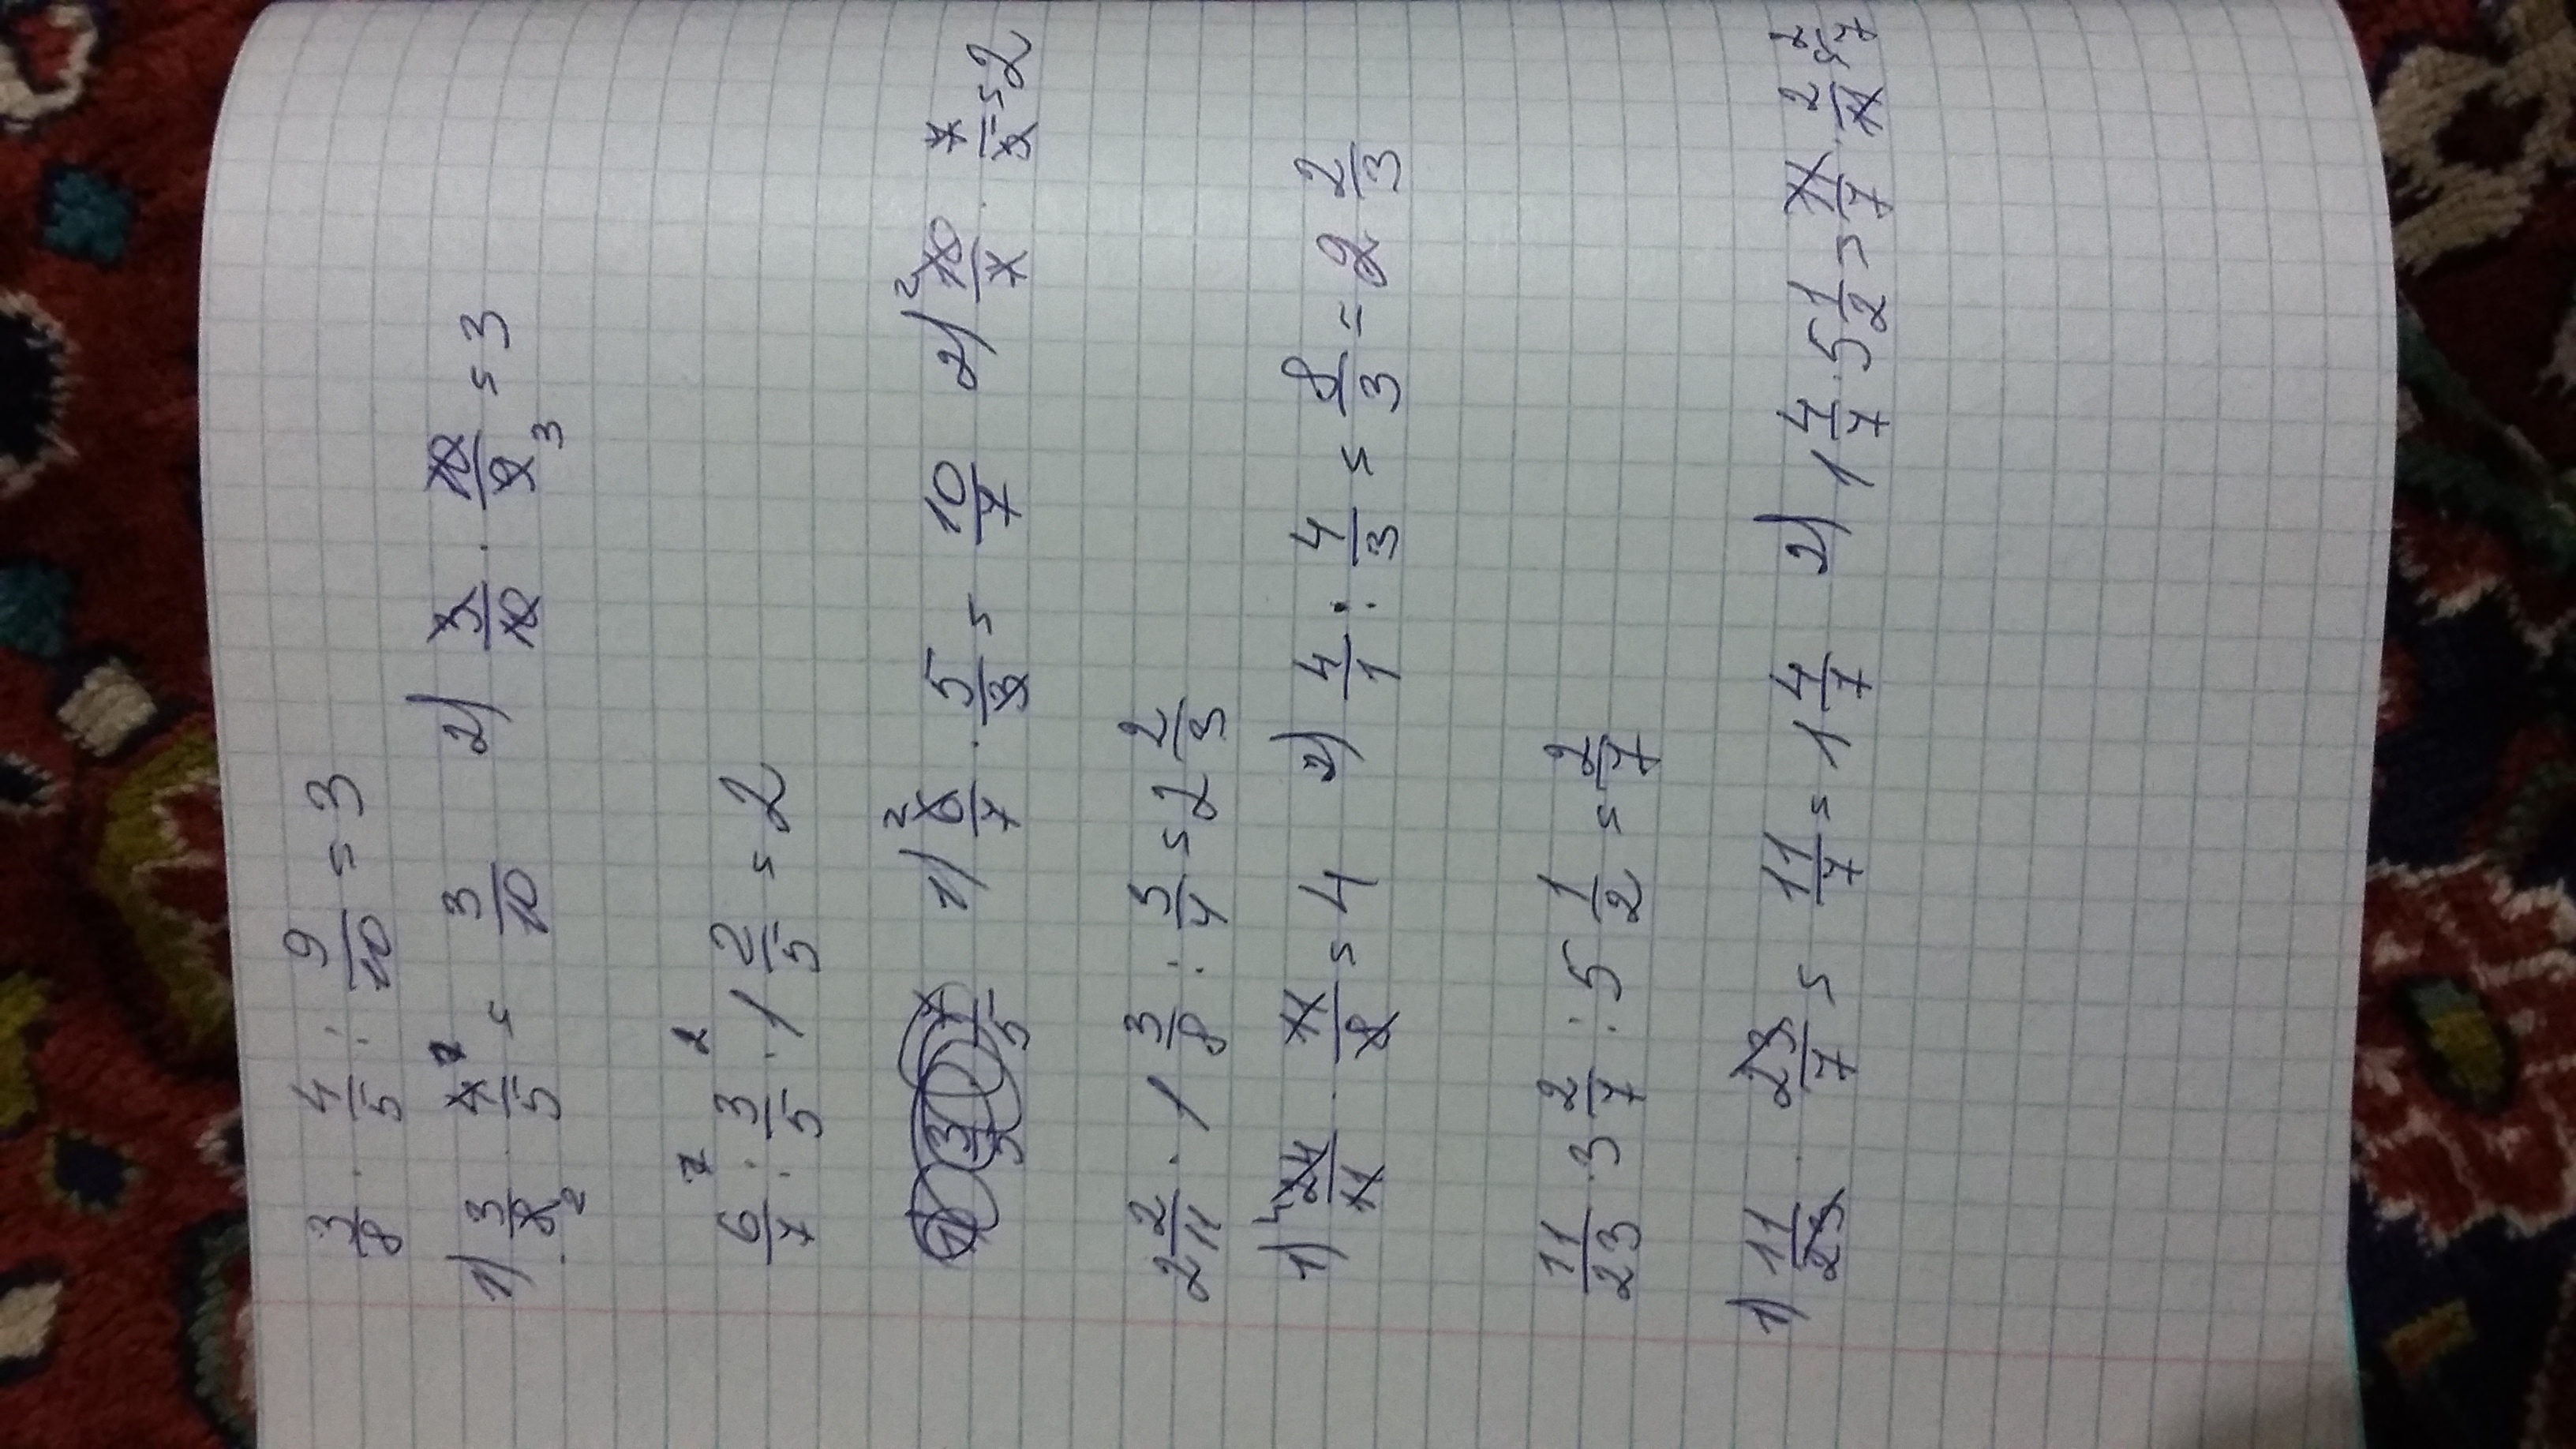 3/8 · 4/5 : 9/10 = 3
1) 3/8 2 · 4/5 = 3/10 2) 3/10 · 10/9 3 = 3
6/7 : 3/5 · 1 2/5 = 2
1) 2 6/7 · 5/3 = 10/7 2) 2 10/7 · 7/5 = 2
2 2/11 · 1 3/8 : 3/4 = 2 2/3
1) 4 24/11 · 11/8 = 4 2) 4/1 : 4/3 = 8/3 = 2 2/3
11/23 · 3 2/7 : 5 1/2 = 2/7
1) 11/23 · 23/7 = 11/7 = 1 4/7 2) 1 4/7 · 5 1/2 = 11/7 · 2/11 = 2/7